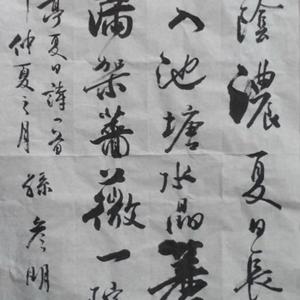 陰濃夏日長
入池塘水晶
滿架薔薇一院
亭夏日詩一首
仲夏之月 孫彥明